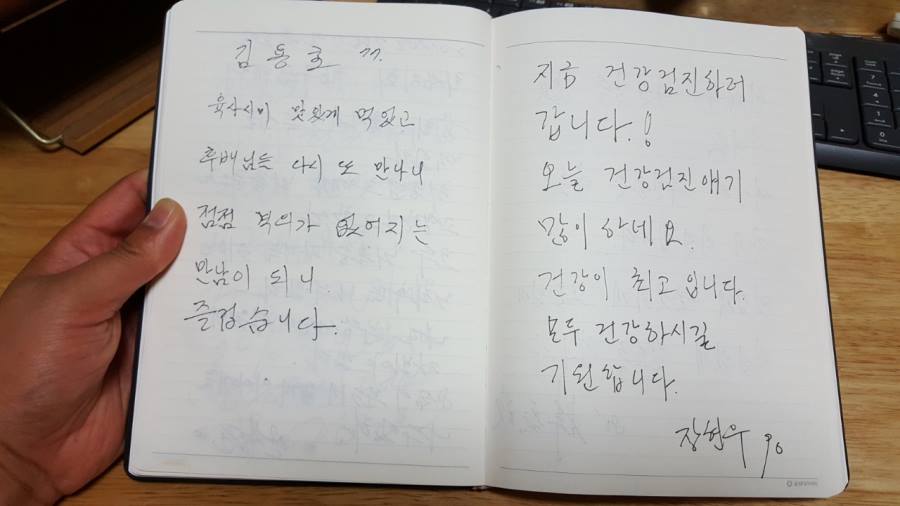 김동호 77.
육사시미 맛있게 먹었고
후배님들 다시 또 만나니
점점 격의가 없어지는
만남이 되니
즐겁습니다.
지금 건강검진하러
갑니다!
오늘 건강검진얘기
많이 하네요.
건강이 최고입니다.
모두 건강하시길
기원합니다.
장현우 90